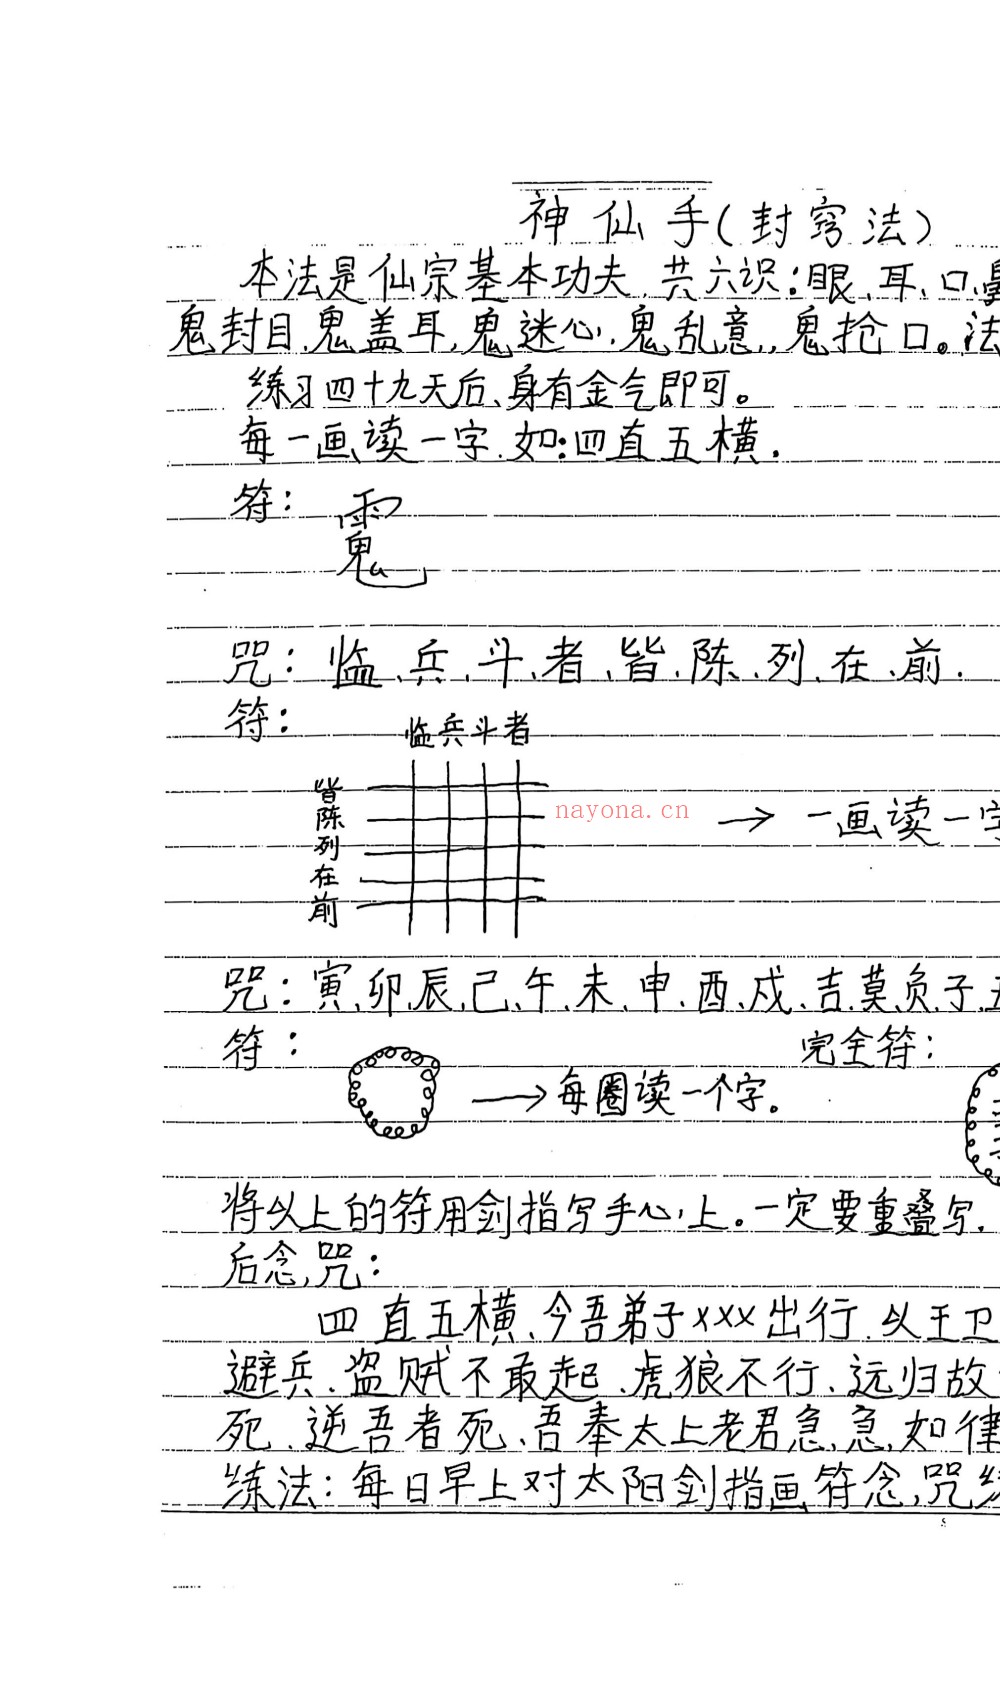 神仙手(封窍法)
本法是仙宗基本功夫,共六识:眼、耳、口、
鬼封目,鬼盖耳,鬼迷心,鬼乱意,鬼抢口。法
练习四十九天后、身有金气即可。
每一画读一字.如:四直五横.
符:
咒:临、兵、斗、者、皆、陈、列、在、前.
符:
临兵斗者
皆
陈
列
在
前
nayona.cn
→一画读一字
咒:寅、卯、辰、己、午、未、申、酉、戍、吉、莫、负、子、
符:
完全符:
→每圈读一个字。
将以上的符用剑指写手心上。一定要重叠写.
后念咒:
四直五横、今吾弟子xxx出行、以王卫
避兵、盗贼不敢起、虎狼不行、远归故
死、逆吾者死、吾奉太上老君急急如律
练法:每日早上对太阳剑指画符念咒